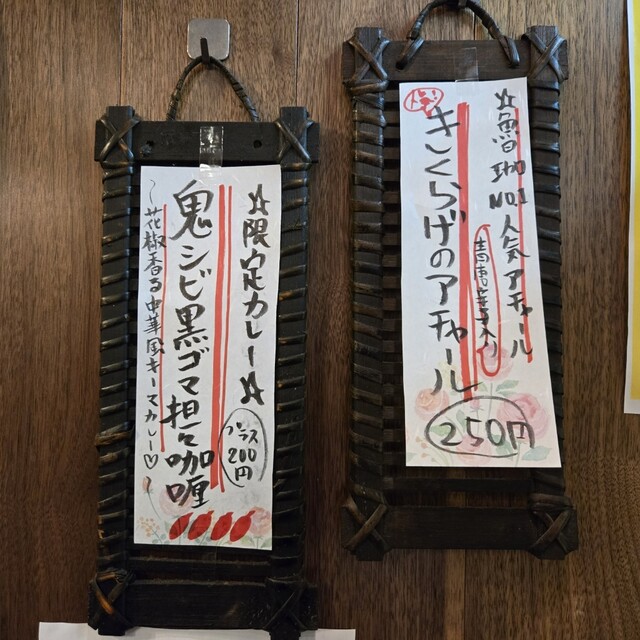 ☆魚出珈No.1人気アチャール
青唐辛子入り
人気
きくらげのアチャール
250円
☆限定カレー☆
プラス
200円
鬼シビ黒ゴマ担々咖喱
〜花椒香る中華風キーマカレー♡〜